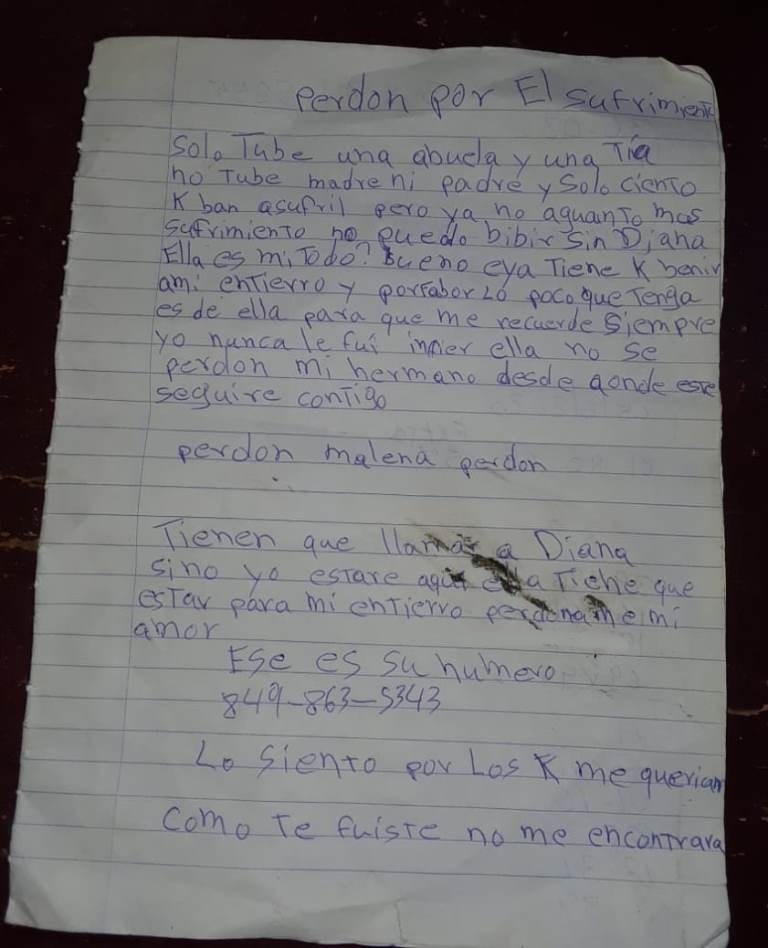 perdon por El sufrimiento
solo Tube una abuela y una Tia
no Tube madre ni padre y Solo ciento
K ban asufril pero ya no aguanto mas
sufrimiento no puedo bibir sin Diana
Ella es mi Todo? bueno eya Tiene K benir
ami entierro y porfabor Lo poco que Tenga
es de ella para que me recuerde Siempre
yo nunca le fui ella no se
perdon mi hermano desde donde este
seguire contigo
perdon malena perdon
Tienen que llamar a Diana
sino yo estare aqui ella Tiene que
estar para mi entierro perdoname mi
amor
Ese es su numero
849-863-5343
Lo siento por Los K me querian
como Te fuiste no me encontrara